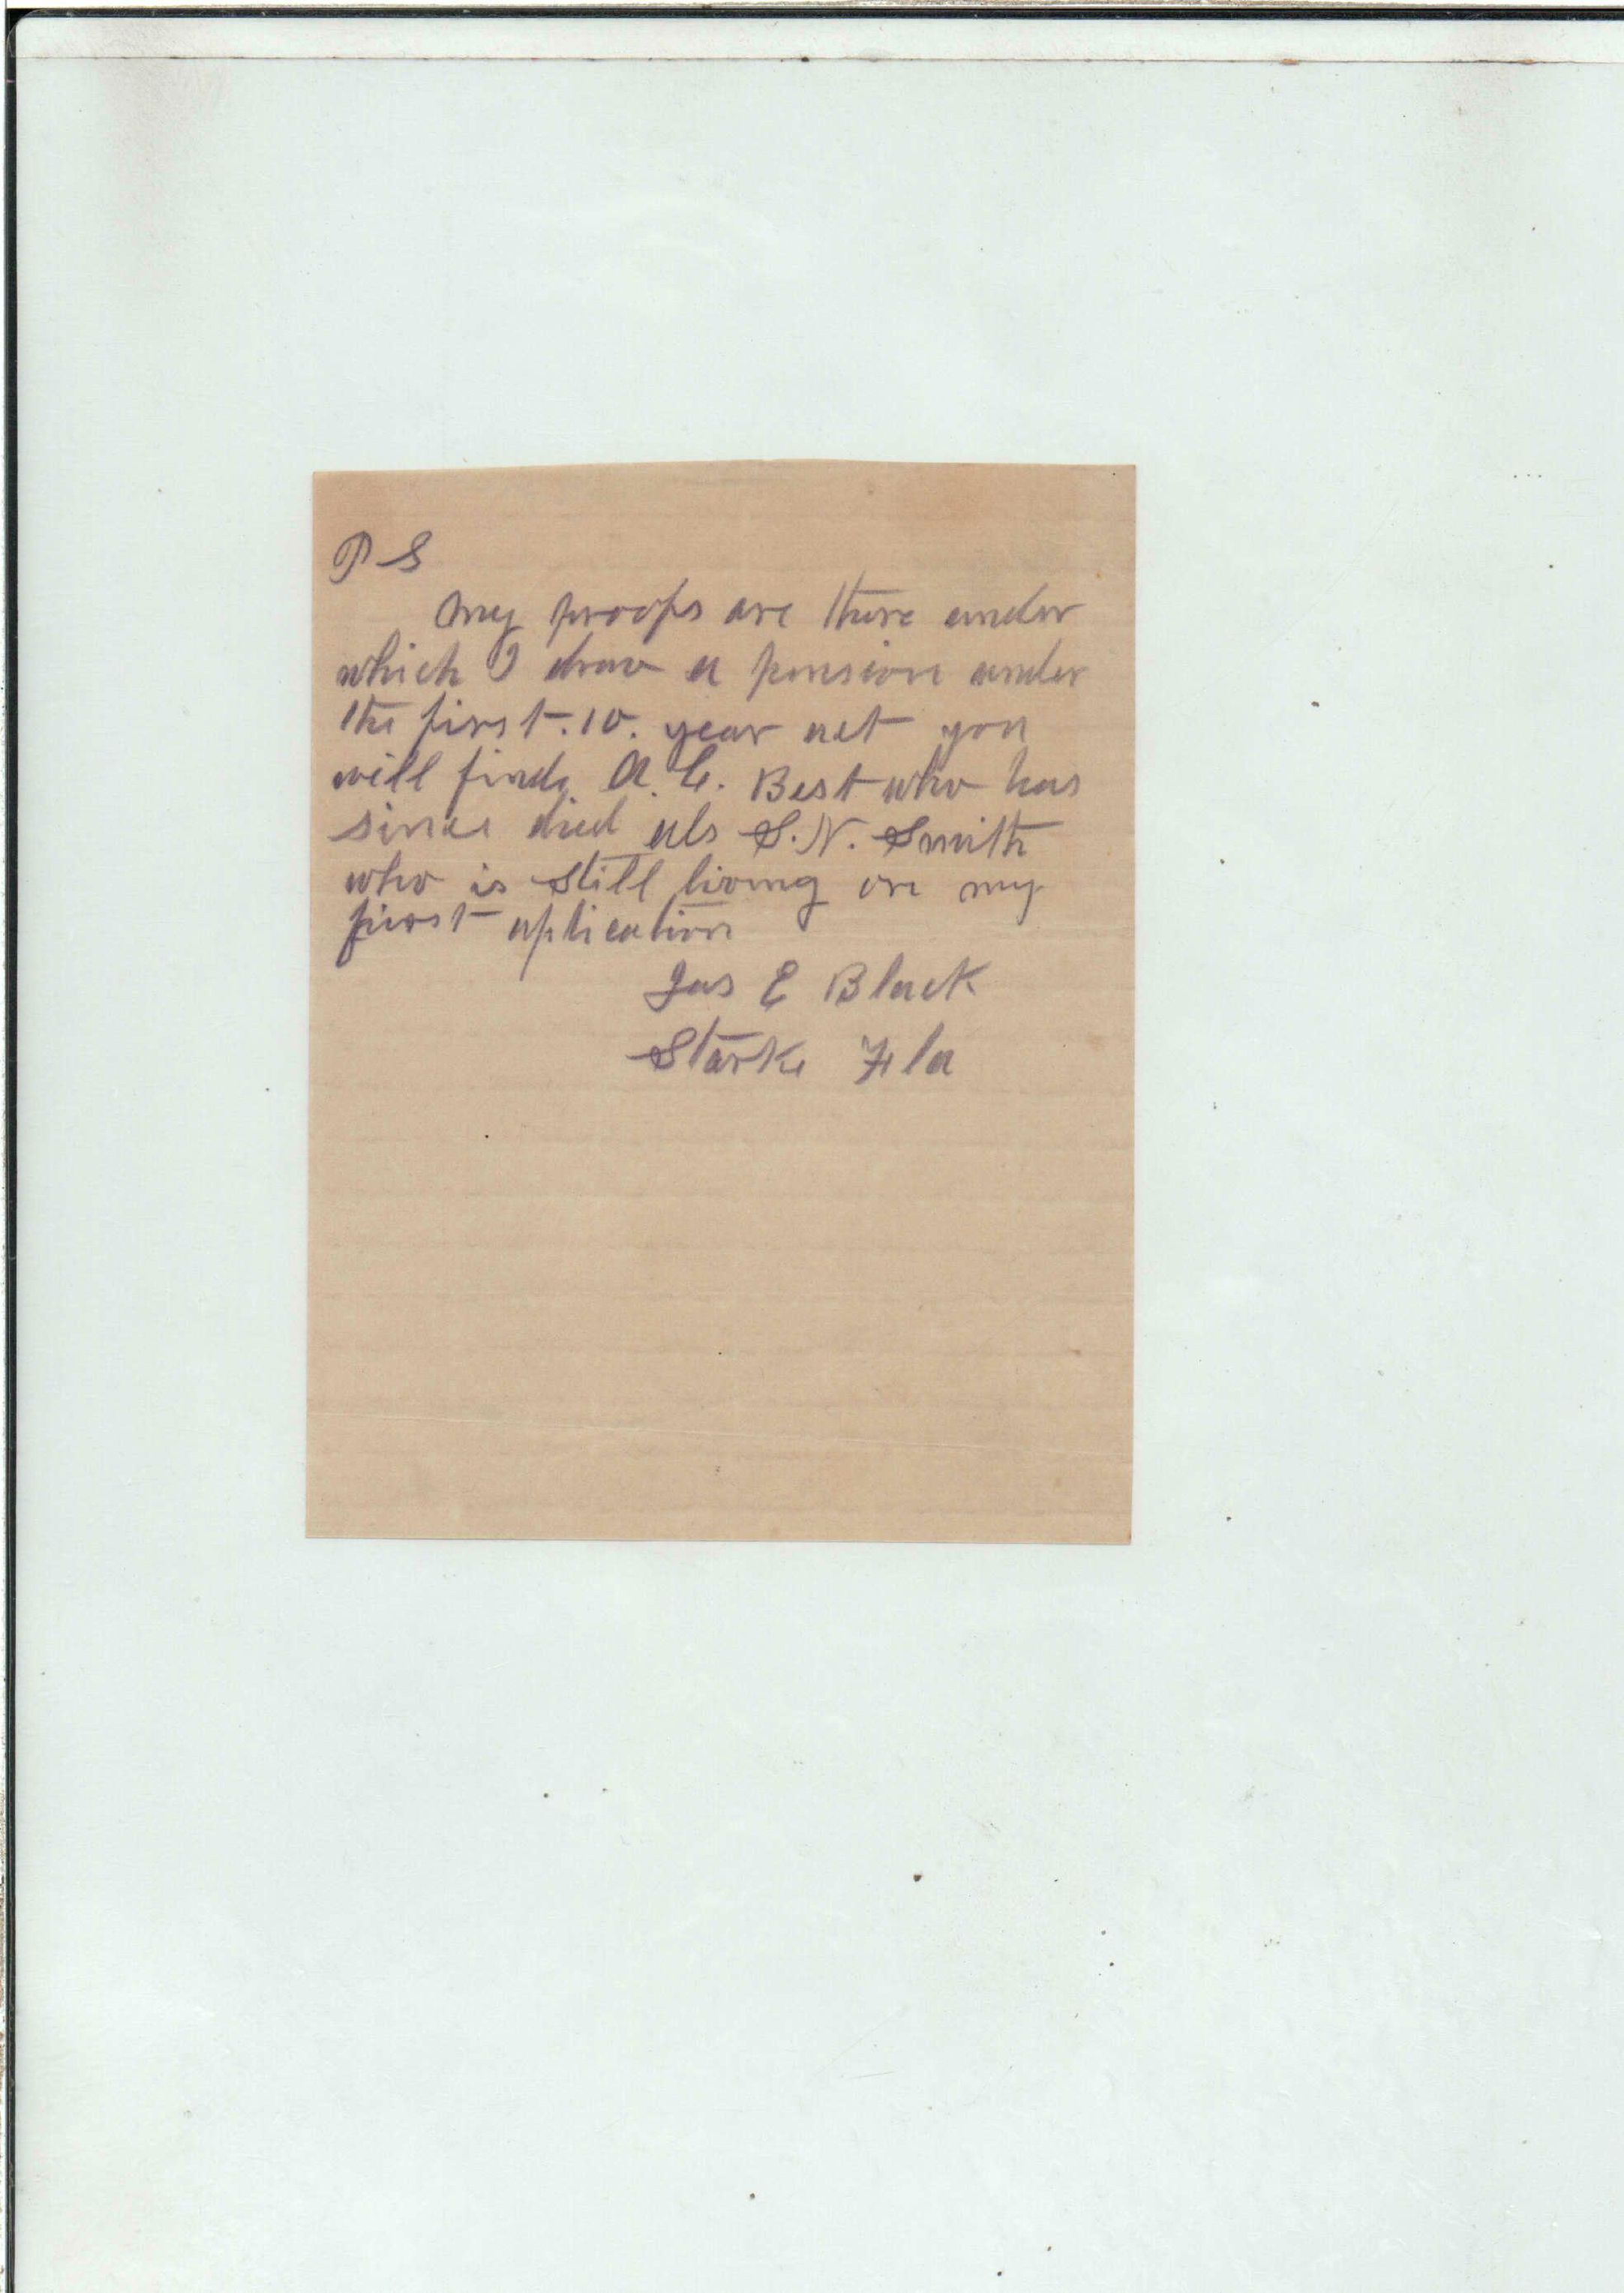 P S
My proofs are there under
which I draw a pension under
the first. 10. year act you
will find A. C. Best who has
since died als S. N. Smith
who is still living on my
first aplication
Jas E Black
Starke Fla